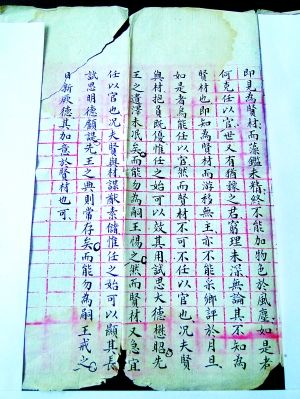 即見為賢材而藻鑑未精終不能加物色於風塵如是者
何克任以官世又有猶豫之君窮理未深無論其不知為
賢材也即知為賢材而游移無主亦不能采鄉評於月旦
如是者烏能任以官然而賢材不可不任以官也况夫賢
與材抱負既優惟任之始可以效其用試思大德懋昭先
王之遺澤未泯矣而能勿為嗣王惕之然而賢材又急宜
任以官也况夫賢與材謀猷素儲惟任之始可以顯其長
試思明德顧諟先王之典則常存矣而能勿為嗣王戒之
日新厥德其加意於賢材也可